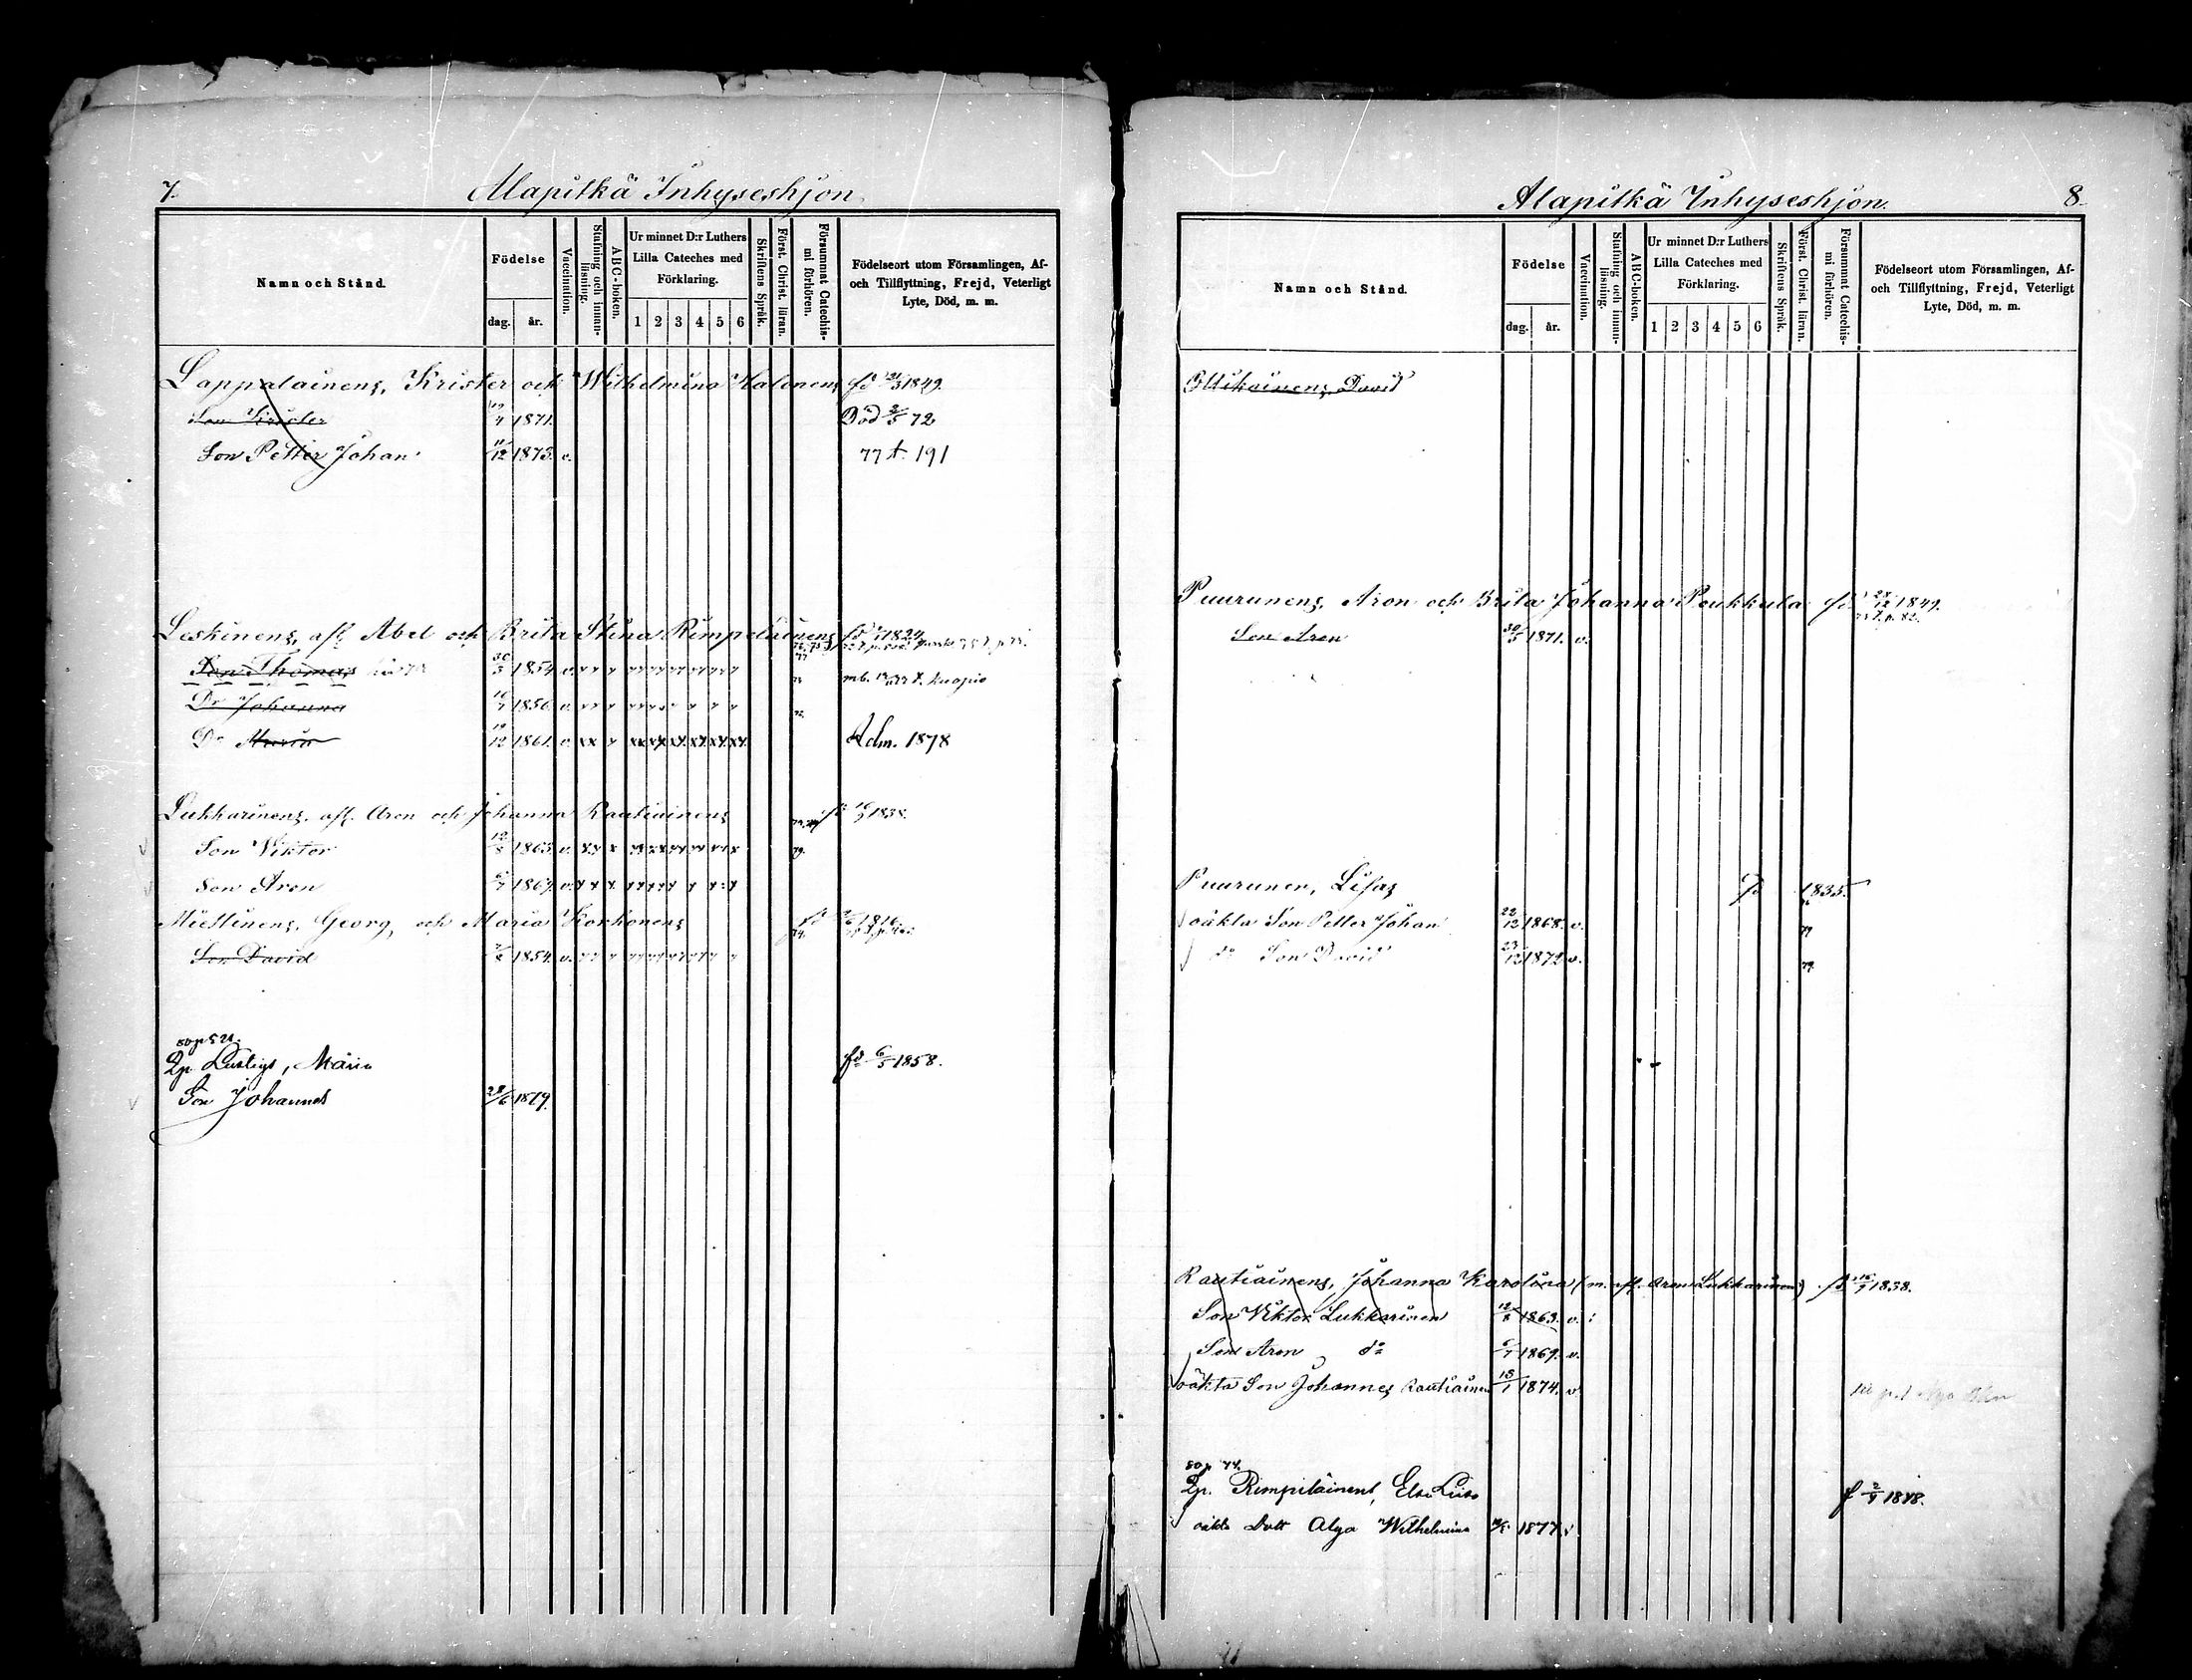 7.
Alapitkä Inhyseshjon
Namn och Stånd.
Födelse
dag. år.
Vaccination.
Stafning och innan-läsning.
ABC-boken.
Ur minnet D:r Luthers Lilla Cateches med Förklaring.
1 2 3 4 5 6
Skriftens Språk.
Först. Christ. läran.
Försummat Catechis-mi förhören.
Födelseort utom Församlingen, Af- och Tillflyttning, Frejd, Veterligt Lyte, Död, m. m.
Lappalainens, Krister och Wilhelmina Halonens fd 1849.
Son Krister 4 1871. Död 2/5 72
Son Petter Johan 12 1873. v. 77 t. 191
Leskinens, afl. Abel och Brita Stina Rimpeläinens fd 1824
Son Thomas 30/3 1854 v. Kuopio
Dr Johanna 16/7 1856. v.
Dr Maria 19/12 1861. v. xx Adm. 1878
Lukkarinens, afl. Aron och Johanna Rautiainens 1838.
Son Viktor 12/8 1863. v. 79.
Son Aron 6/7 1869. v.
Miettinens, Georg, och Maria Korhonens 1816.
Son David 1854. v.
Lp. Lustigs, Maria fd 6/5 1858.
Son Johannes 28/6 1879.
Alapitkä Inhyseshjon.
8.
Namn och Stånd.
Födelse
dag. år.
Vaccination.
Stafning och innan-läsning.
ABC-boken.
Ur minnet D:r Luthers Lilla Cateches med Förklaring.
1 2 3 4 5 6
Skriftens Språk.
Först. Christ. läran.
Försummat Catechis-mi förhören.
Födelseort utom Församlingen, Af- och Tillflyttning, Frejd, Veterligt Lyte, Död, m. m.
David
Puurunens, Aron och Brita Johanna Poukkula fd 28/12 1849.
Son Aron 30/5 1871. v.
Puurunen, Lisas fd 1835.
oäkta Son Petter Johan 22/12 1868. v. 79
do Son David 23/12 1872 v. 79.
Rautiainens, Johanna Karolina (m. afl. Aron Lukkarinen) fd 16/7 1838.
Son Viktor Lukkarinen 12/8 1863. v.
Son Aron do 6/7 1869. v.
oäkta Son Johannes Rautiainen 18/1 1874. v
Lp. Rimpiläinens, Elsa Lisa f 2/9 1848.
oäkta Dott Alga Wilhelmina 1877. v